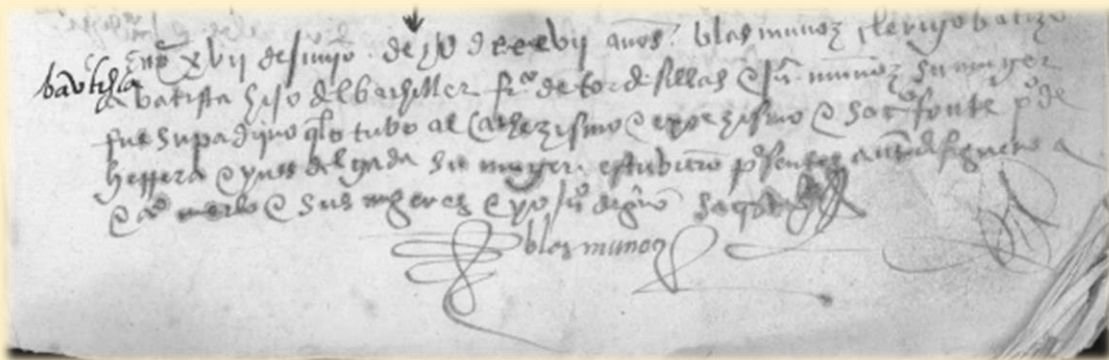 bautista
En xvii de junyo de jU dxxxvii anos. blas munoz clerigo batizo
a batista hijo del bachiller fr.co de tordesillas e ju.a munoz su muger
fue su padrino q lo tubo al cathezismo e exorzismo e sacro fonte p.o de
herrera e ynes delgada su muger. estubiero presentes anto de figueroa
e a.o merlo e sus mugeres e yo ju.o
blas munoz